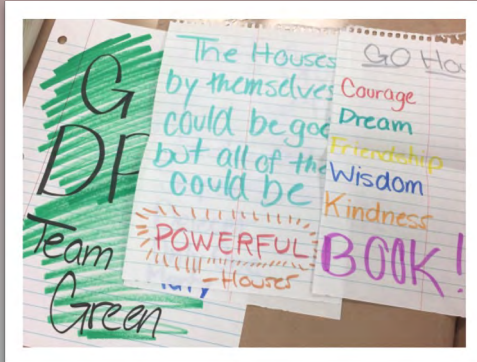 G
DP
Team
Green
Mary
The Houses
by themselves
could be
but all of the
could be
POWERFUL
-Houses
GO
Courage
Dream
Friendship
Wisdom
Kindness
BOOK!